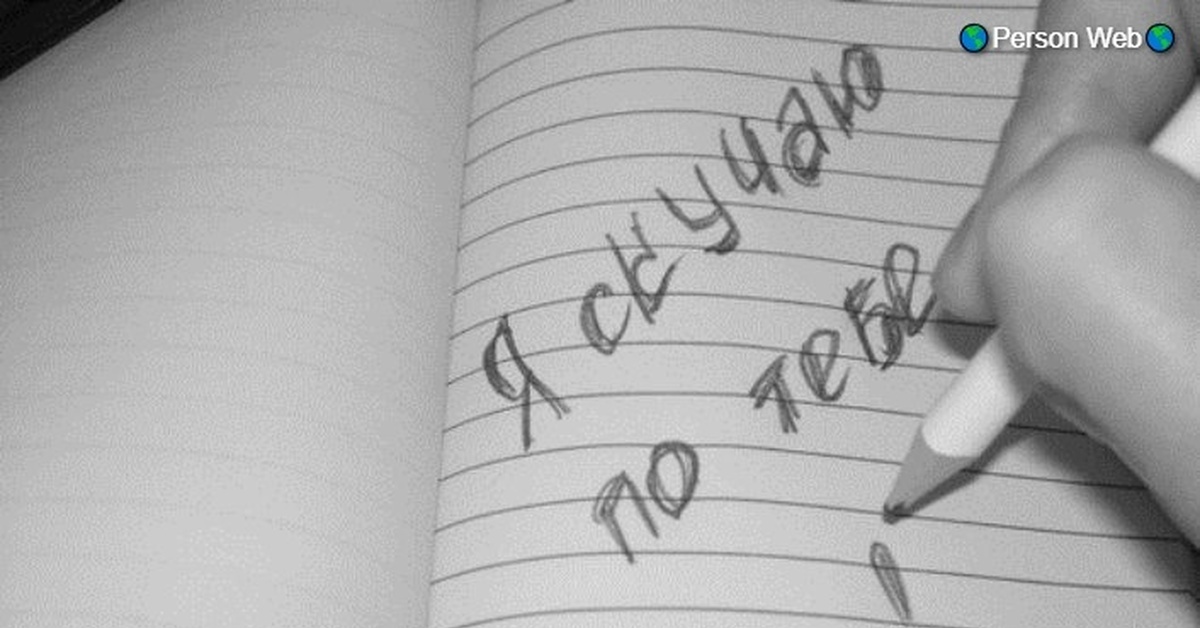 Person Web
Я скучаю
по тебе